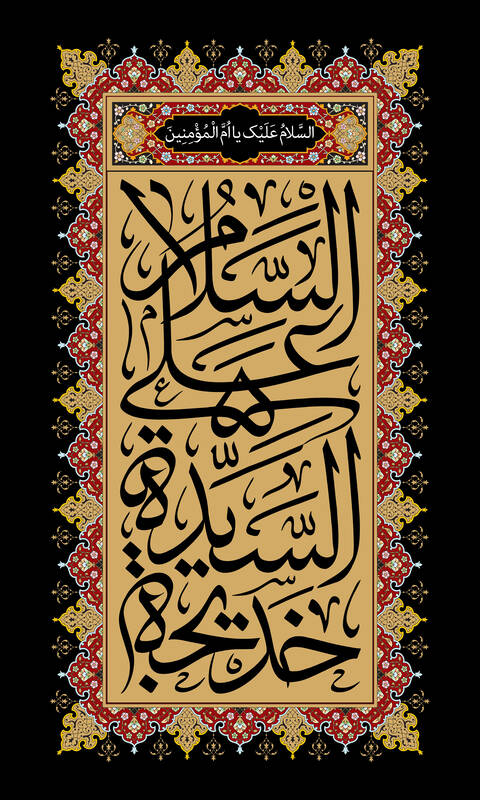 السَّلامُ عَلَيْكِ يا اُمَّ الْمُؤْمِنِينَ
السَّلامُ
على
السَّيِّدة
خديجة